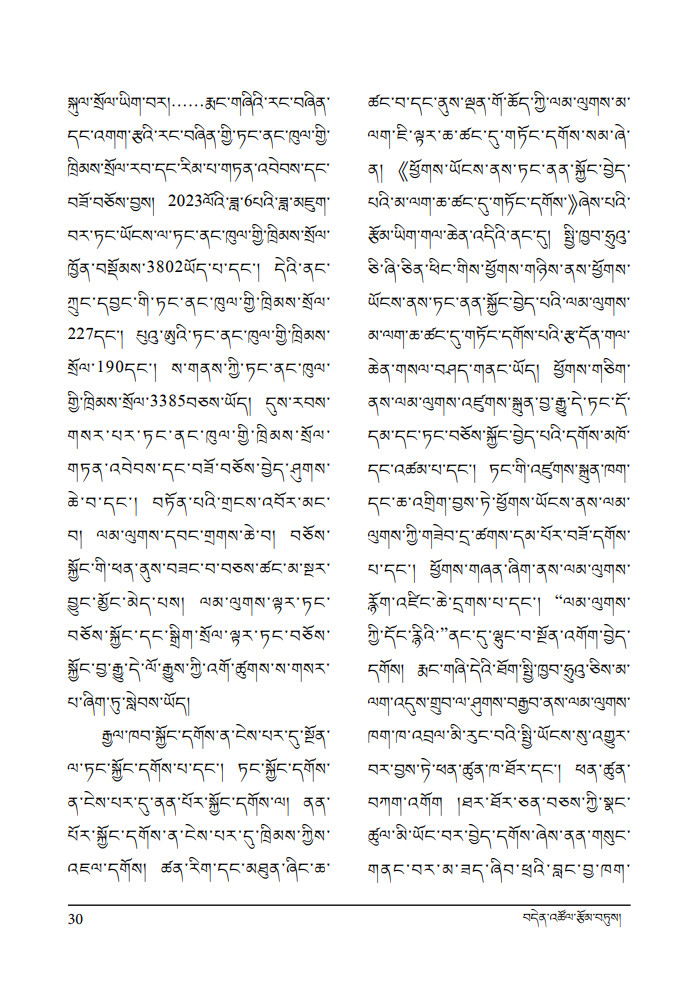 སྐུལ་སྲོལ་ཡིག་བར།……རྨང་གཞིའི་རང་བཞིན་
དང་འགག་རྩའི་རང་བཞིན་གྱི་ཏང་ནང་ཁུལ་གྱི་
ཁྲིམས་སྲོལ་རབ་དང་རིམ་པ་གཏན་འབེབས་དང་
བཟོ་བཅོས་བྱས། 2023ལོའི་ཟླ་6པའི་ཟླ་མཇུག་
བར་ཏང་ཡོངས་ལ་ཏང་ནང་ཁུལ་གྱི་ཁྲིམས་སྲོལ་
ཁྱོན་བསྡོམས་3802ཡོད་པ་དང་། དེའི་ནང་
ཀྲུང་དབྱང་གི་ཏང་ནང་ཁུལ་གྱི་ཁྲིམས་སྲོལ་
227དང་། པུའུ་ཨུའི་ཏང་ནང་ཁུལ་གྱི་ཁྲིམས་
སྲོལ་190དང་། ས་གནས་ཀྱི་ཏང་ནང་ཁུལ་
གྱི་ཁྲིམས་སྲོལ་3385བཅས་ཡོད། དུས་རབས་
གསར་པར་ཏང་ནང་ཁུལ་གྱི་ཁྲིམས་སྲོལ་
གཏན་འབེབས་དང་བཟོ་བཅོས་བྱེད་ཤུགས་
ཆེ་བ་དང་། བཏོན་པའི་གྲངས་འབོར་མང་
བ། ལམ་ལུགས་དབང་གྲགས་ཆེ་བ། བཅོས་
སྐྱོང་གི་ཕན་ནུས་བཟང་བ་བཅས་ཚང་མ་སྔར་
བྱུང་མྱོང་མེད་པས། ལམ་ལུགས་ལྟར་ཏང་
བཅོས་སྐྱོང་དང་སྒྲིག་སྲོལ་ལྟར་ཏང་བཅོས་
སྐྱོང་བྱ་རྒྱུ་དེ་ལོ་རྒྱུས་ཀྱི་འགོ་ཚུགས་ས་གསར་
པ་ཞིག་ཏུ་སླེབས་ཡོད།
རྒྱལ་ཁབ་སྐྱོང་དགོས་ན་ངེས་པར་དུ་སྔོན་
ལ་ཏང་སྐྱོང་དགོས་པ་དང་། ཏང་སྐྱོང་དགོས་
ན་ངེས་པར་དུ་ནན་པོར་སྐྱོང་དགོས་ལ། ནན་
པོར་སྐྱོང་དགོས་ན་ངེས་པར་དུ་ཁྲིམས་ཀྱིས་
འཇལ་དགོས། ཚན་རིག་དང་མཐུན་ཞིང་ཆ་
ཚང་བ་དང་ནུས་ལྡན་གོ་ཆོད་ཀྱི་ལམ་ལུགས་མ་
ལག་ཇི་ལྟར་ཆ་ཚང་དུ་གཏོང་དགོས་སམ་ཞེ་
ན། 《ཕྱོགས་ཡོངས་ནས་ཏང་ནན་སྐྱོང་བྱེད་
པའི་མ་ལག་ཆ་ཚང་དུ་གཏོང་དགོས་》ཞེས་པའི་
རྩོམ་ཡིག་གལ་ཆེན་འདིའི་ནང་དུ། སྤྱི་ཁྱབ་ཧྲུའུ་
ཅི་ཞི་ཅིན་ཕིང་གིས་ཕྱོགས་གཉིས་ནས་ཕྱོགས་
ཡོངས་ནས་ཏང་ནན་སྐྱོང་བྱེད་པའི་ལམ་ལུགས་
མ་ལག་ཆ་ཚང་དུ་གཏོང་དགོས་པའི་རྩ་དོན་གལ་
ཆེན་གསལ་བཤད་གནང་ཡོད། ཕྱོགས་གཅིག་
ནས་ལམ་ལུགས་འཛུགས་སྐྲུན་བྱ་རྒྱུ་དེ་ཏང་དོ་
དམ་དང་ཏང་བཅོས་སྐྱོང་བྱེད་པའི་དགོས་མཁོ་
དང་འཚམ་པ་དང་། ཏང་གི་འཛུགས་སྐྲུན་ཁག་
དང་ཆ་འགྲིག་བྱས་ཏེ་ཕྱོགས་ཡོངས་ནས་ལམ་
ལུགས་ཀྱི་གཟེབ་དྲ་ཚགས་དམ་པོར་བཟོ་དགོས་
པ་དང་། ཕྱོགས་གཞན་ཞིག་ནས་ལམ་ལུགས་
རྙོག་འཛིང་ཆེ་དྲགས་པ་དང་། “ལམ་ལུགས་
ཀྱི་དོང་རྙིའི་”ནང་དུ་ལྷུང་བ་སྔོན་འགོག་བྱེད་
དགོས། རྨང་གཞི་དེའི་ཐོག་སྤྱི་ཁྱབ་ཧྲུའུ་ཅིས་མ་
ལག་འདུས་གྲུབ་ལ་ཤུགས་བརྒྱབ་ནས་ལམ་ལུགས་
ཁག་ཁ་འབྲལ་མི་རུང་བའི་སྤྱི་ཡོངས་སུ་འགྱུར་
བར་བྱས་ཏེ་ཕན་ཚུན་ཁ་ཐོར་དང་། ཕན་ཚུན་
བཀག་འགོག །ཐར་ཐོར་ཅན་བཅས་ཀྱི་སྣང་
ཚུལ་མི་ཡོང་བར་བྱེད་དགོས་ཞེས་ནན་གསུང་
གནང་བར་མ་ཟད་ཞིབ་ཕྲའི་བླང་བྱ་ཁག་
30 བདེན་འཚོལ་རྩོམ་བཏུས།